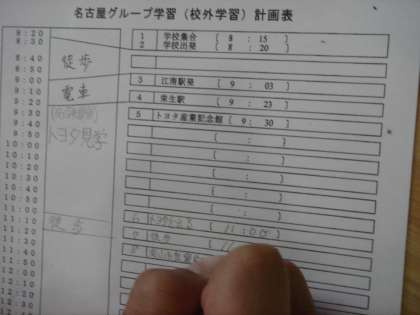 名古屋グループ学習(校外学習)計画表
8:20
8:30
8:40
8:50
9:00
9:10
9:20
9:30
9:40
9:50
10:00
10:10
10:20
10:30
10:40
10:50
11:00
11:10
11:20
11:30
11:40
11:50
12:00
12:10
12:20
12:30
徒歩
電車
トヨタ見学
徒歩
1 学校集合 [ 8 : 15 ]
2 学校出発 [ 8 : 20 ]
3 江南駅発 [ 9 : 03 ]
4 栄生駅 [ 9 : 23 ]
5 トヨタ産業記念館 [ 9 : 30 ]
[ : ]
[ : ]
[ : ]
[ : ]
[ : ]
[ : ]
6 トヨタ出る [ 11 : 00 ]
7 徒歩 [ 11
8